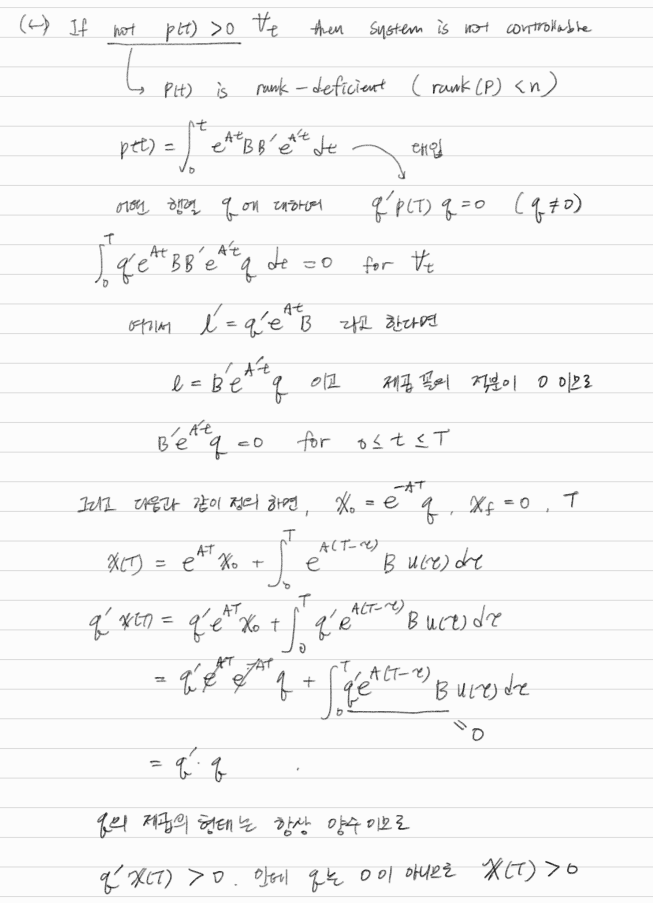 (←) If not p(t) > 0 ∀t then system is not controllable
↳ P(t) is rank-deficient ( rank(P) < n )
p(t) = ∫₀ᵗ e^{At} B B′ e^{A′t} dt 대입
어떤 행렬 q에 대하여 q′p(T) q = 0 ( q ≠ 0 )
∫₀ᵀ q′e^{At} B B′ e^{A′t} q dt = 0 for ∀t
여기서 l′ = q′e^{At} B 라고 한다면
l = B′e^{A′t} q 이고 제곱 꼴의 적분이 0 이므로
B′e^{A′t} q = 0 for 0 ≤ t ≤ T
그리고 다음과 같이 정의 하면, x₀ = e^{-AT} q , x_f = 0 , T
x(T) = e^{AT} x₀ + ∫₀ᵀ e^{A(T-τ)} B u(τ) dτ
q′ x(T) = q′e^{AT} x₀ + ∫₀ᵀ q′e^{A(T-τ)} B u(τ) dτ
= q′ e^{AT} e^{-AT} q + ∫₀ᵀ q′e^{A(T-τ)} B u(τ) dτ
= 0
= q′ · q .
q의 제곱의 형태는 항상 양수이므로
q′x(T) > 0. 만에 q는 0이 아니므로 x(T) > 0